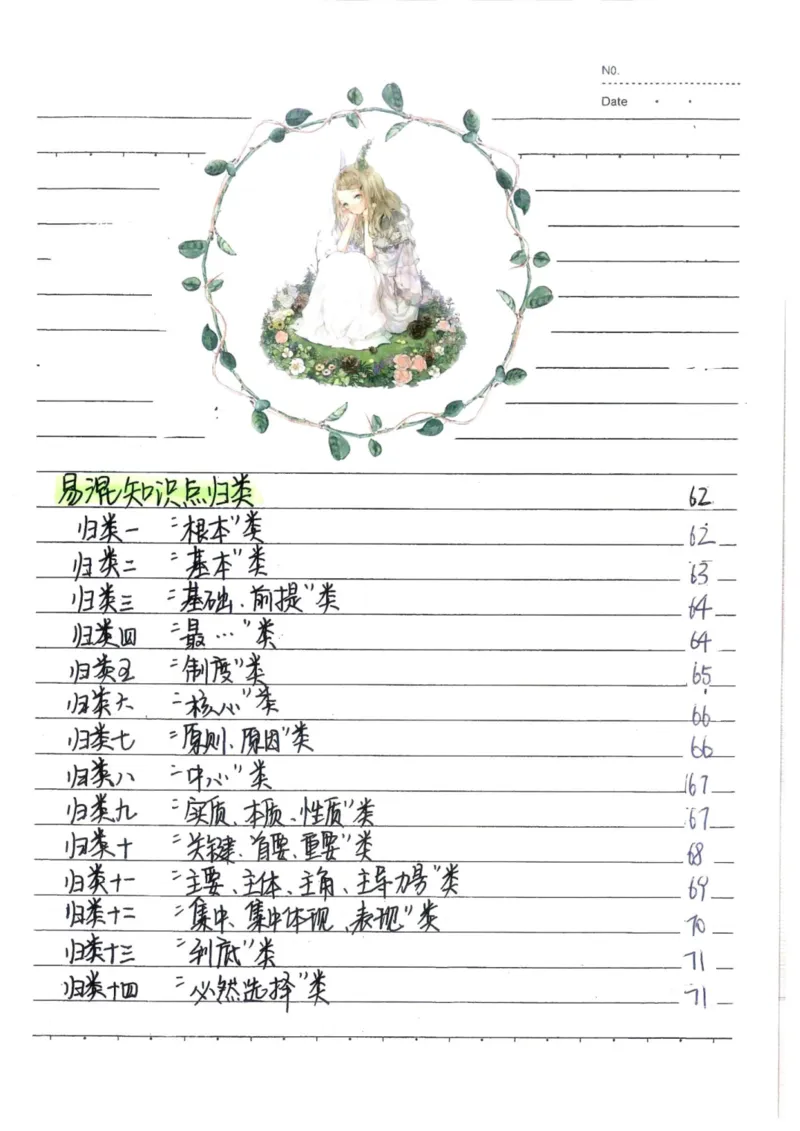 N0.
Date
易混知识点归类 62
归类一 "根本"类 62
归类二 "基本"类 63
归类三 "基础、前提"类 64
归类四 "最…"类 64
归类五 "制度"类 65
归类六 "核心"类 66
归类七 "原则、原因"类 66
归类八 "中心"类 67
归类九 "实质、本质、性质"类 67
归类十 "关键、首要、重要"类 68
归类十一 "主要、主体、主角、主导力量"类 69
归类十二 "集中、集中体现、表现"类 70
归类十三 "到底"类 71
归类十四 "必然选择"类 71